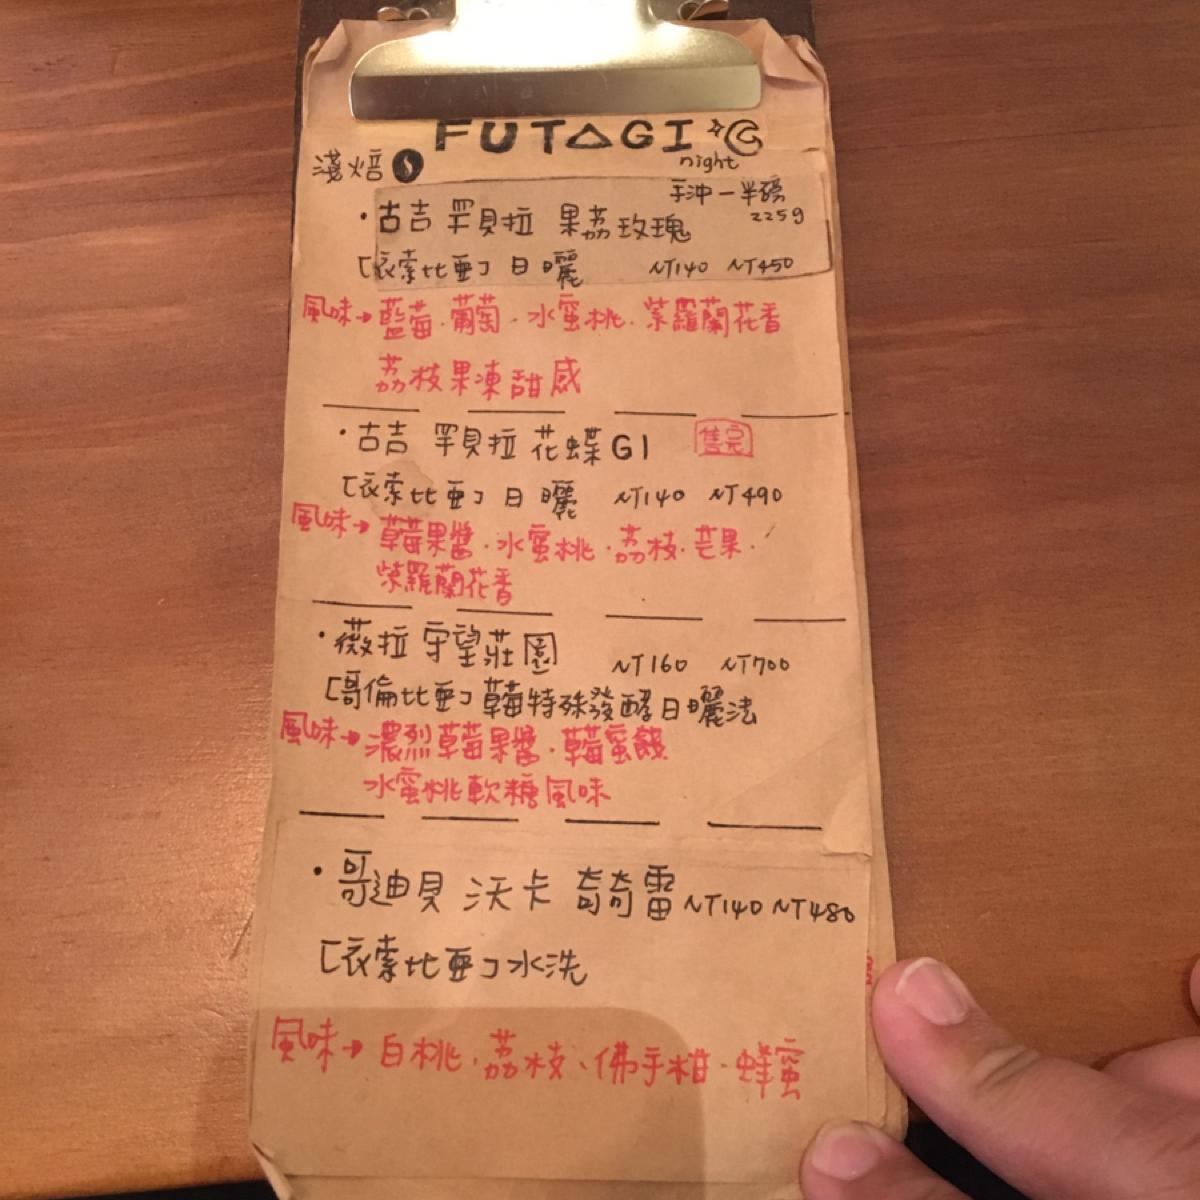 FUTAGI
night
淺焙
手沖 一 半磅
225g
·古吉 罕貝拉 果荔玫瑰
[衣索比亞] 日曬 NT140 NT450
風味→藍莓·葡萄·水蜜桃·紫羅蘭花香
荔枝果凍甜感
·古吉 罕貝拉 花蝶G1 售完
[衣索比亞] 日曬 NT140 NT490
風味→草莓果醬·水蜜桃·荔枝·芒果·
紫羅蘭花香
·薇拉 守望莊園 NT160 NT700
[哥倫比亞] 草莓特殊發酵日曬法
風味→濃烈草莓果醬·草莓蜜餞
水蜜桃軟糖風味
·哥迪貝 沃卡 奇奇雷 NT140 NT480
[衣索比亞] 水洗
風味→白桃·荔枝、佛手柑·蜂蜜